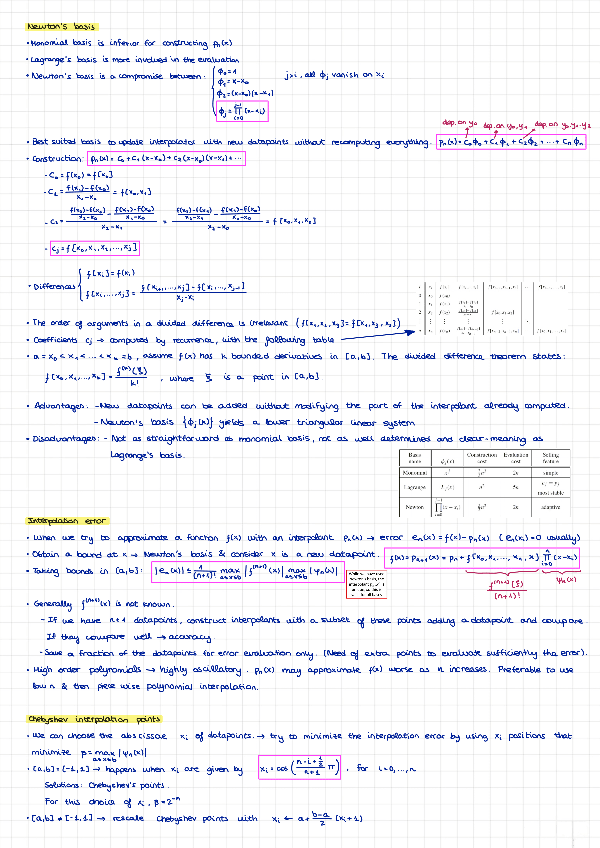 Newton's basis
• Monomial basis is inferior for constructing pₙ(x)
• Lagrange's basis is more involved in the evaluation
• Newton's basis is a compromise between: { ϕ₀ = 1   j>i, all ϕj vanish on xᵢ
ϕ₁ = x-x₀
ϕ₂ = (x-x₀)(x-x₁)
ϕj = ∏ᵢ₌₀^(j-1) (x-xᵢ)
dep. on y₀ dep. on y₀, y₁ dep. on y₀, y₁, y₂
• Best suited basis to update interpolator with new datapoints without recomputing everything. pₙ(x) = c₀ϕ₀ + c₁ϕ₁ + c₂ϕ₂ + ... + cₙϕₙ
• Construction: pₙ(x) = c₀ + c₁(x-x₀) + c₂(x-x₀)(x-x₁) + ...
- c₀ = f(x₀) = f[x₀]
- c₁ = (f(x₁)-f(x₀))/(x₁-x₀) = f[x₀,x₁]
= f[x₀,x₁,x₂]
- cj = f[x₀, x₁, x₂, ..., xj]
• Differences { f[xᵢ] = f(xᵢ)
f[xᵢ,...,xj] = (f[xᵢ₊₁,...,xj] - f[xᵢ,...,xj₋₁])/(xj-xᵢ)
• The order of arguments in a divided difference is irrelevant (f[x₁,x₂,x₃] = f[x₁,x₃,x₂])
• Coefficients cj → computed by recurrence, with the following table
• a = x₀ < x₁ < ... < xₙ = b, assume f(x) has k bounded derivatives in [a,b]. The divided difference theorem states:
f[x₀, x₁, ..., xₖ] = f⁽ᵏ⁾(ξ)/k! , where ξ is a point in [a,b]
• Advantages: - New datapoints can be added without modifying the part of the interpolant already computed.
- Newton's basis {ϕj(x)} yields a lower triangular linear system
• Disadvantages: - Not as straightforward as monomial basis, not as well determined and clear-meaning as
Lagrange's basis.
Basis name ϕj(x) Construction cost Evaluation cost Selling feature
Monomial simple
Lagrange most stable
Newton adaptive
Interpolation error
• When we try to approximate a function f(x) with an interpolant pₙ(x) → error eₙ(x) = f(x) - pₙ(x) (eₙ(xᵢ) = 0 usually)
• Obtain a bound at x → Newton's basis & consider x is a new datapoint. f(x) = pₙ₊₁(x) = pₙ + f[x₀, x₁, ..., xₙ, x] ∏ᵢ₌₀ⁿ (x-xᵢ)
• Taking bounds in [a,b]: |eₙ(x)| ≤ 1/(n+1)! max a≤x≤b |f⁽ⁿ⁺¹⁾(x)| max a≤x≤b |ψₙ(x)|
f⁽ⁿ⁺¹⁾(ξ)/(n+1)! ψₙ(x)
• Generally f⁽ⁿ⁺¹⁾(x) is not known.
- If we have n+1 datapoints, construct interpolants with a subset of these points adding a datapoint and compare.
If they compare well → accuracy
- Save a fraction of the datapoints for error evaluation only. (Need of extra points to evaluate sufficiently the error).
• High order polynomials → highly oscillatory. pₙ(x) may approximate f(x) worse as n increases. Preferable to use
low n & then piece wise polynomial interpolation.
Chebyshev interpolation points
• We can choose the abscissae xᵢ of datapoints. → try to minimize the interpolation error by using xᵢ positions that
minimize β = max a≤x≤b |ψₙ(x)|
• [a,b] = [-1,1] → happens when xᵢ are given by xᵢ = cos((n-i+½)/(n+1) π) , for i=0,...,n
Solutions: Chebyshev's points.
For this choice of xᵢ, β = 2⁻ⁿ
• [a,b] ≠ [-1,1] → rescale Chebyshev points with xᵢ ← a + (b-a)/2 (xᵢ+1)